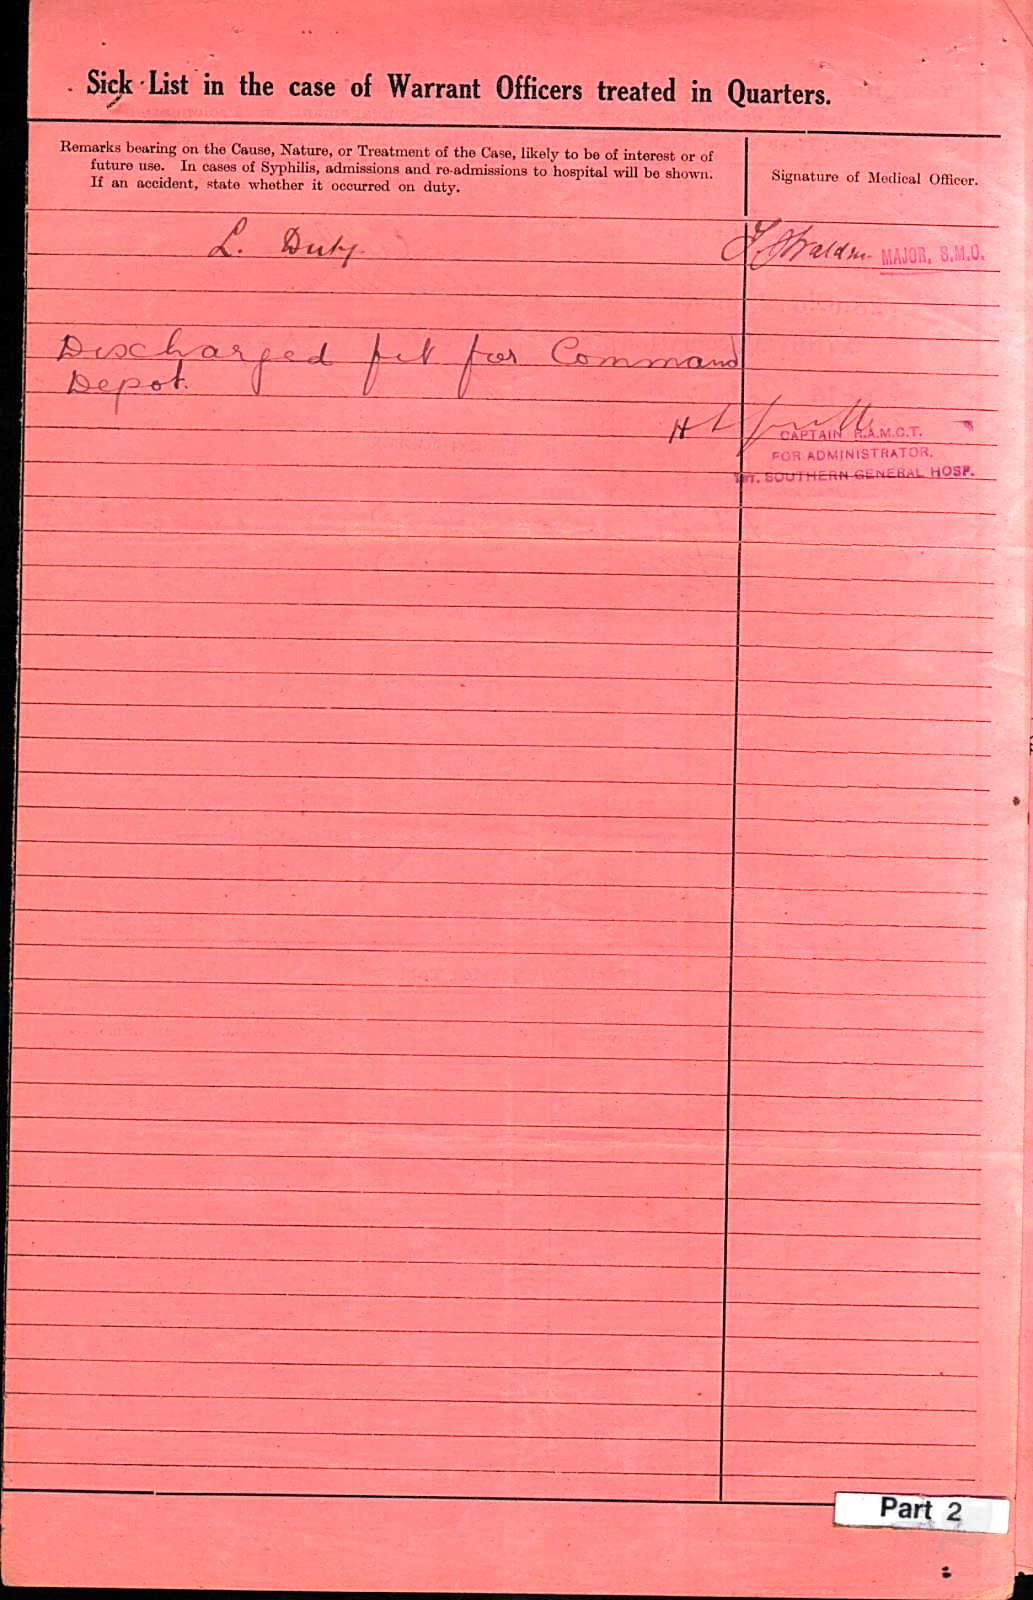 Sick List in the case of Warrant Officers treated in Quarters.
Remarks bearing on the Cause, Nature, or Treatment of the Case, likely to be of interest or of
future use. In cases of Syphilis, admissions and re-admissions to hospital will be shown.
If an accident, state whether it occurred on duty.
Signature of Medical Officer.
L. Duty.
MAJOR, S.M.O.
Discharged fit for Command
Depot.
CAPTAIN R.A.M.C.T.
FOR ADMINISTRATOR,
1ST. SOUTHERN GENERAL HOSP.
Part 2